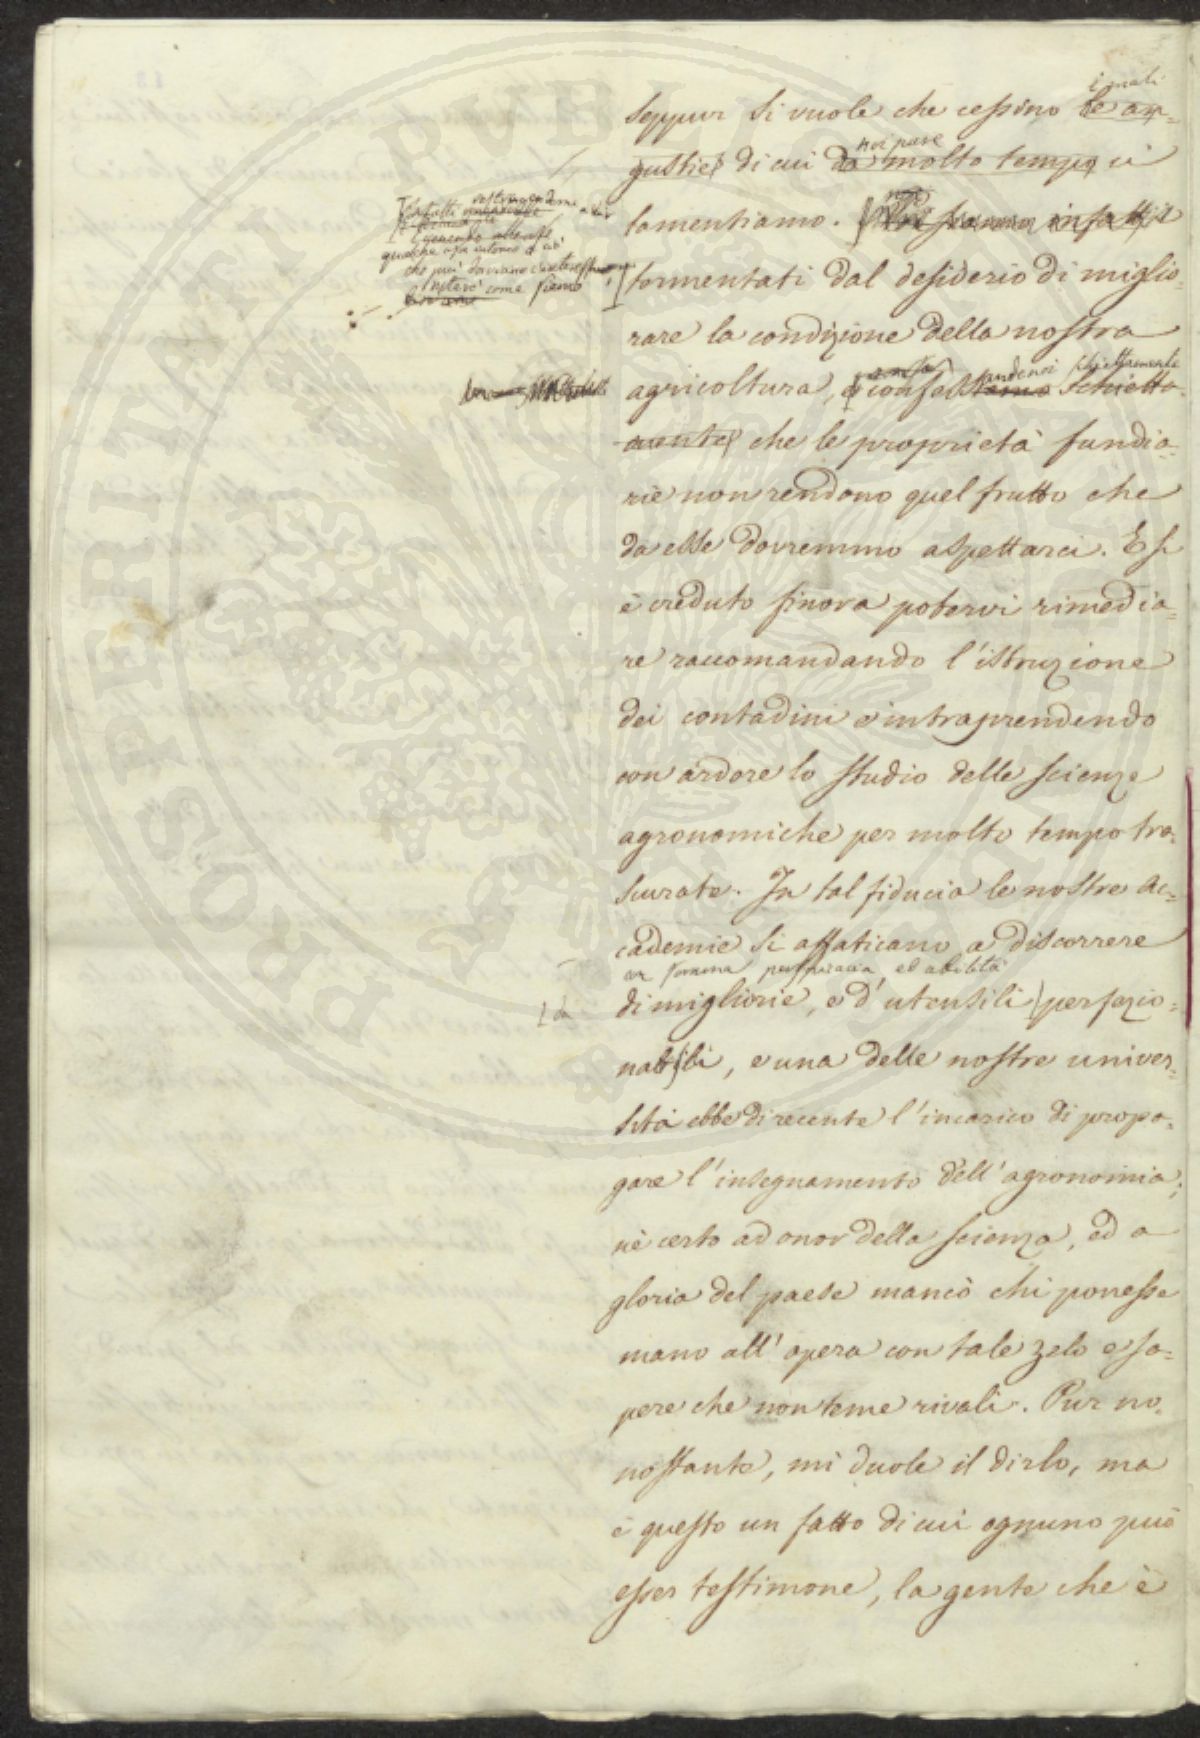 i mali
seppur si vuole che cessino le an=
noi pure
gustie di cui da molto tempo ci
lamentiamo. Noi siamo infatti
tormentati dal desiderio di miglio=
rare la condizione della nostra
schiettamente
agricoltura, e confessiamo schietta=
mente che le proprietà fundia=
rie non rendono quel frutto che
da esse dovremmo aspettarci. E si
è creduto finora potervi rimedia=
re raccomandando l'istruzione
dei contadini e intraprendendo
con ardore lo studio delle scienze
agronomiche per molto tempo tra=
scurate. In tal fiducia le nostre Ac=
cademie si affaticano a discorrere
con somma perspicacia ed abilità
di migliorie, e d'utensili perfezio=
nabili, e una delle nostre univer=
sità ebbe di recente l'incarico di propa=
gare l'insegnamento dell'agronomia;
nè certo ad onor della scienza, ed a
gloria del paese mancò chi ponesse
mano all'opera con tale zelo e sa=
pere che non teme rivali. Pur no=
nostante, mi duole il dirlo, ma
è questo un fatto di cui ognuno può
esser testimone, la gente che è
qualche
che può
come siamo
PROSPERITATI PVBLICAE